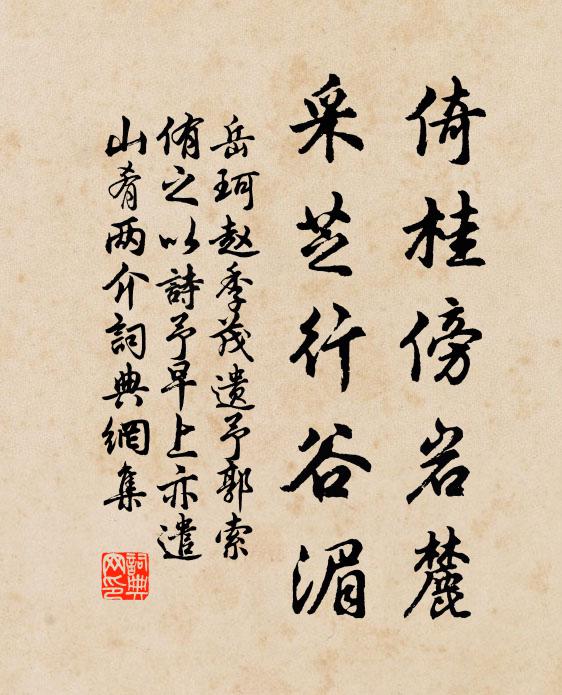 倚桂傍岩麓
采芝行谷湄
岳珂赵季茂遗予郭索
侑之以詩予早上亦遣
山肴两介詞典網集
詞典网印